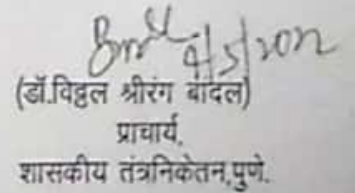 9/5/2022
(डॉ.विठ्ठल श्रीरंग बांदल)
प्राचार्य,
शासकीय तंत्रनिकेतन,पुणे.